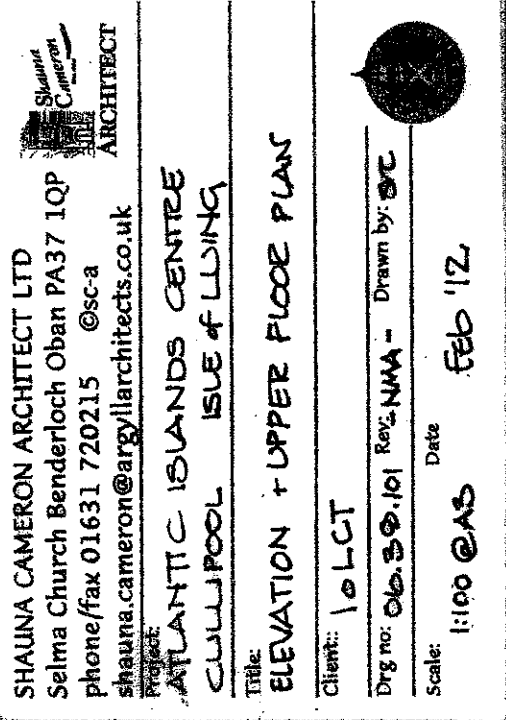 SHAUNA CAMERON ARCHITECT LTD
Selma Church Benderloch Oban PA37 1QP
phone/fax 01631 720215 ©sc-a
shauna.cameron@argyllarchitects.co.uk
Shauna
Cameron
ARCHITECT
Project:
ATLANTIC ISLANDS CENTRE
CULLIPOOL ISLE of LUING
Title:
ELEVATION + UPPER FLOOR PLAN
Client:: IoLCT
Drg no: 06.38.101 Rev: NMA - Drawn by: SVC
Scale: 1:100 @A3 Date Feb '12